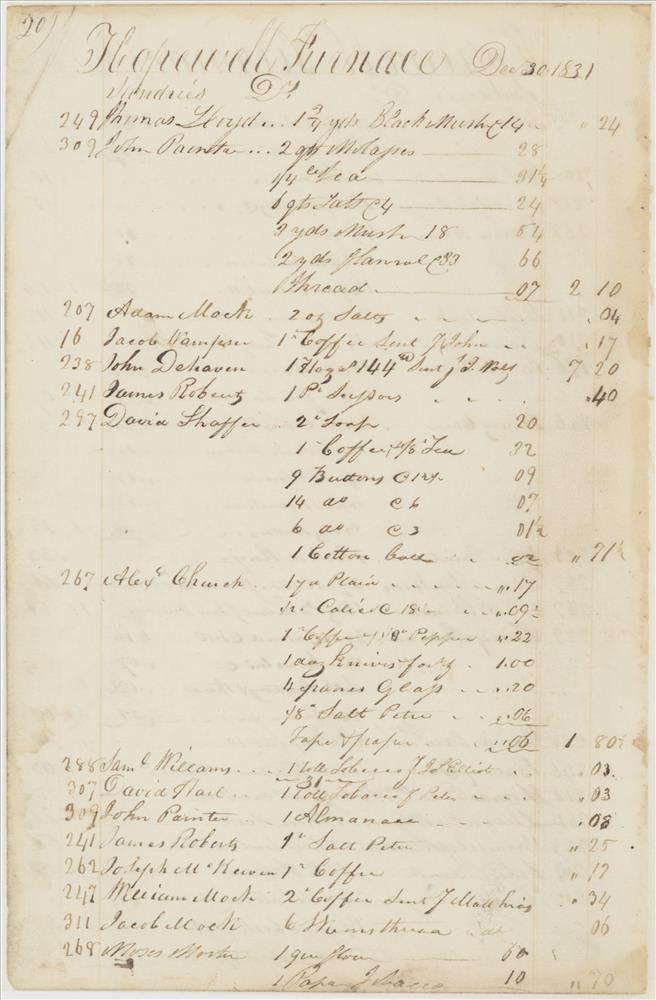 20
Hopewell Furnace Dec 30. 1831
Sundries Dr
249 Thomas Lloyd... 1 3/4 yds Black Musn @ 14 " 24
309 John Painter ... 2 qts Molases 28
1/4 Tea 31 1/4
6 qts Salt @ 4 24
3 yds Musn 18 54
2 yds flannel @ 33 66
Thread 07 2 10
207 Adam Mock . 2 oz Salts .04
16 Jacob 1 Coffee Sent John .17
238 John Dehaven 1 144 Sent 7 20
241 James Roberts 1 Pr Sissors .40
297 David Shaffer 2 Soap 20
1 Coffee 1/8 Tea 32
9 Buttons @ 09
14 do @ 6 07
6 do @ 3 01 1/2
1 Cotton Ball 02 " 71 1/2
267 Alexr Church . 1 yd Plain ".17
1/2 Calico @ 18 ".09
1 Coffee 1/8 Pepper ".22
1 doz knives forks . 1.00
4 panes Glass .20
1/8 Salt Petre .06
Tape & paper .06 1 80
288 Saml Williams 1 Roll Tobacco .03
31
307 David Hart 1 Roll Tobacco Peter .03
309 John Painter 1 Almanac .08
241 James Roberts 1 Salt Petre " 25
262 Joseph McKewen 1 Coffee " 17
247 William Mock 2 Coffee Sent Matthias " 34
311 Jacob Mock 6 Skeins thread 06
268 Moses 1 60
1 Paper Tobacco 10 " 70